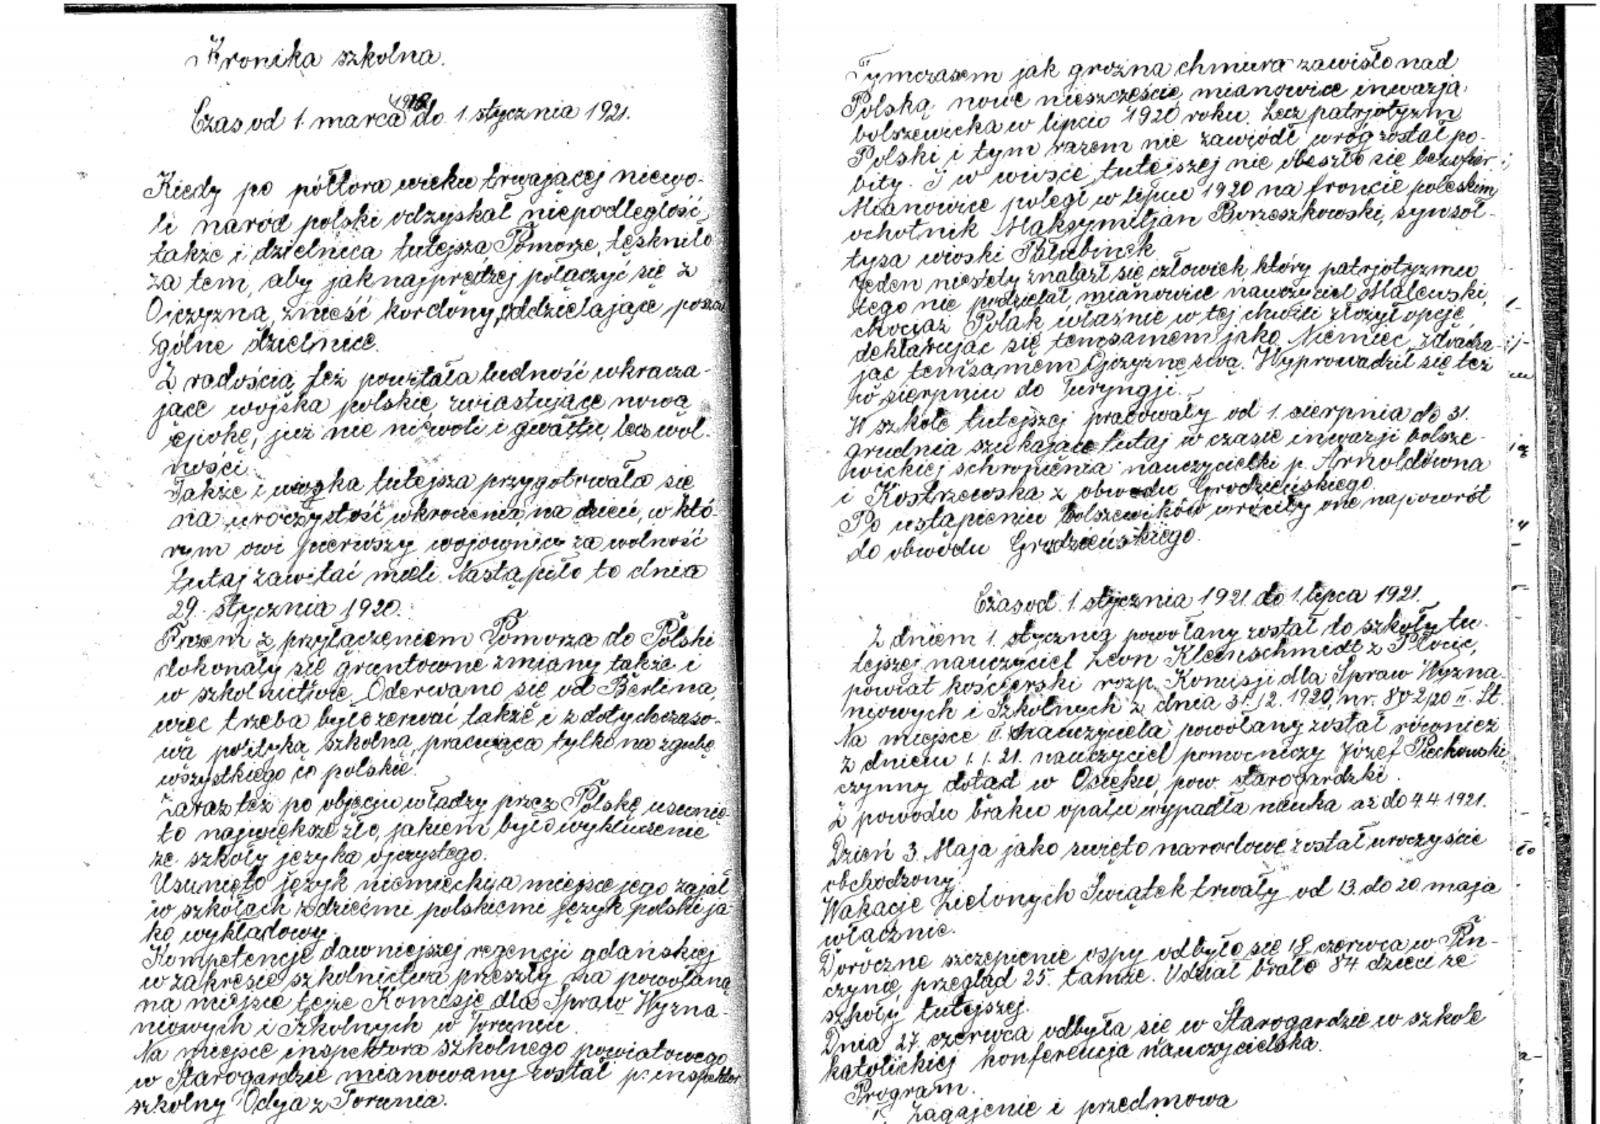 Kronika szkolna.
Czas od 1. marca 1918 do 1. stycznia 1921.
Kiedy po półtora wieku trwającej niewo-
li naród polski odzyskał niepodległość,
także i dzielnica tutejsza Pomorze, tęskniło
za tem, aby jak najprędzej połączyć się z
Ojczyzną, znieść kordony, oddzielające poszcze
gólne dzielnice.
Z radością też powitała ludność wkracza-
jące wojska polskie, zwiastujące nową
epokę, już nie niewoli i gwałtu lecz wol-
ności.
Także i wioska tutejsza przygotowała się
na uroczystość wkroczenia na dzień, w któ-
rym owi pierwszy wojownicy za wolność
tutaj zawitać mieli. Nastąpiło to dnia
29. stycznia 1920.
Przem z przyłączeniem Pomorza do Polski
dokonały się gruntowne zmiany także i
w szkolnictwie. Oderwano się od Berlina,
więc trzeba było zerwać także i z dotychczaso-
wą polityką szkolną, pracującą tylko na zgubę
wszystkiego co polskie.
Zaraz też po objęciu władzy przez Polskę usunię-
to największe zło, jakiem było wykluczenie
ze szkoły języka ojczystego.
Usunięto język niemiecki, a miejsce jego zajął
w szkołach z dziećmi polskiemi język polski ja-
ko wykładowy.
Kompetencje dawniejszej regencji gdańskiej
w zakresie szkolnictwa przeszły na powołaną
na miejsce tejże Komisję dla Spraw Wyzna-
niowych i Szkolnych w Toruniu.
Na miejsce inspektora szkolnego powiatowego
w Starogardzie mianowany został p. inspektor
szkolny Odya z Torunia.
Tymczasem jak groźna chmura zawisło nad
Polską nowe nieszczęście mianowice inwazja
bolszewicka w lipcu 1920 roku. Lecz patrjotyzm
Polski i tym razem nie zawiódł wróg został po-
bity. I w wiosce tutejszej nie obeszło się bez ofiar
Mianowice poległ w lipcu 1920 na froncie poleskim
ochotnik Maksymiljan Brzeszkowski, syn soł-
tysa wioski Pałubinek.
Jeden niestety znalazł się człowiek który patrjotyzmu
tego nie podzielał, mianowice nauczyciel Malewski,
chociaż Polak właśnie w tej chwili złożył opcję
deklarując się temsamem jako Niemiec, zdradza-
jąc temsamem Ojczyznę swą. Wyprowadził się też
w sierpniu do Turyngji.
W szkole tutejszej pracowały od 1. sierpnia do 31.
grudnia szukające tutaj w czasie inwazji bolsze-
wickiej schronienia nauczycielki p. Arnoldówna
i Kostrzewska z obwodu Grodzieńskiego.
Po ustąpieniu bolszewików wróciły one napowrót
do obwodu Grodzieńskiego.
Czas od. 1. stycznia 1921. do 1. lipca 1921.
Z dniem 1. stycznia powołany został do szkoły tu-
tejszej nauczyciel Leon Kleinschmidt z Płocic,
powiat kościerski rozp. Komisji dla Spraw Wyzna-
niowych i Szkolnych z dnia 31.12.1920, nr. 802/20 II. St.
Na miejsce II. nauczyciela powołany został również
z dniem 1.1.21. nauczyciel pomocniczy Józef Piechowski,
czynny dotąd w Osieku, pow. starogardzki.
Z powodu braku opału wypadła nauka aż do 4.4 1921.
Dzień 3. Maja jako święto narodowe został uroczyście
obchodzony.
Wakacje Zielonych Świątek trwały od 13. do 20 maja
włącznie.
Doroczne szczepienie ospy odbyło się 18. czerwca w Pin-
czynie, przegląd 25. tamże. Udział brało 84 dzieci ze
szkoły tutejszej.
Dnia 27. czerwca odbyła się w Starogardzie w szkole
katolickiej konferencja nauczycielska.
Program.
Zagajenie i przedmowa